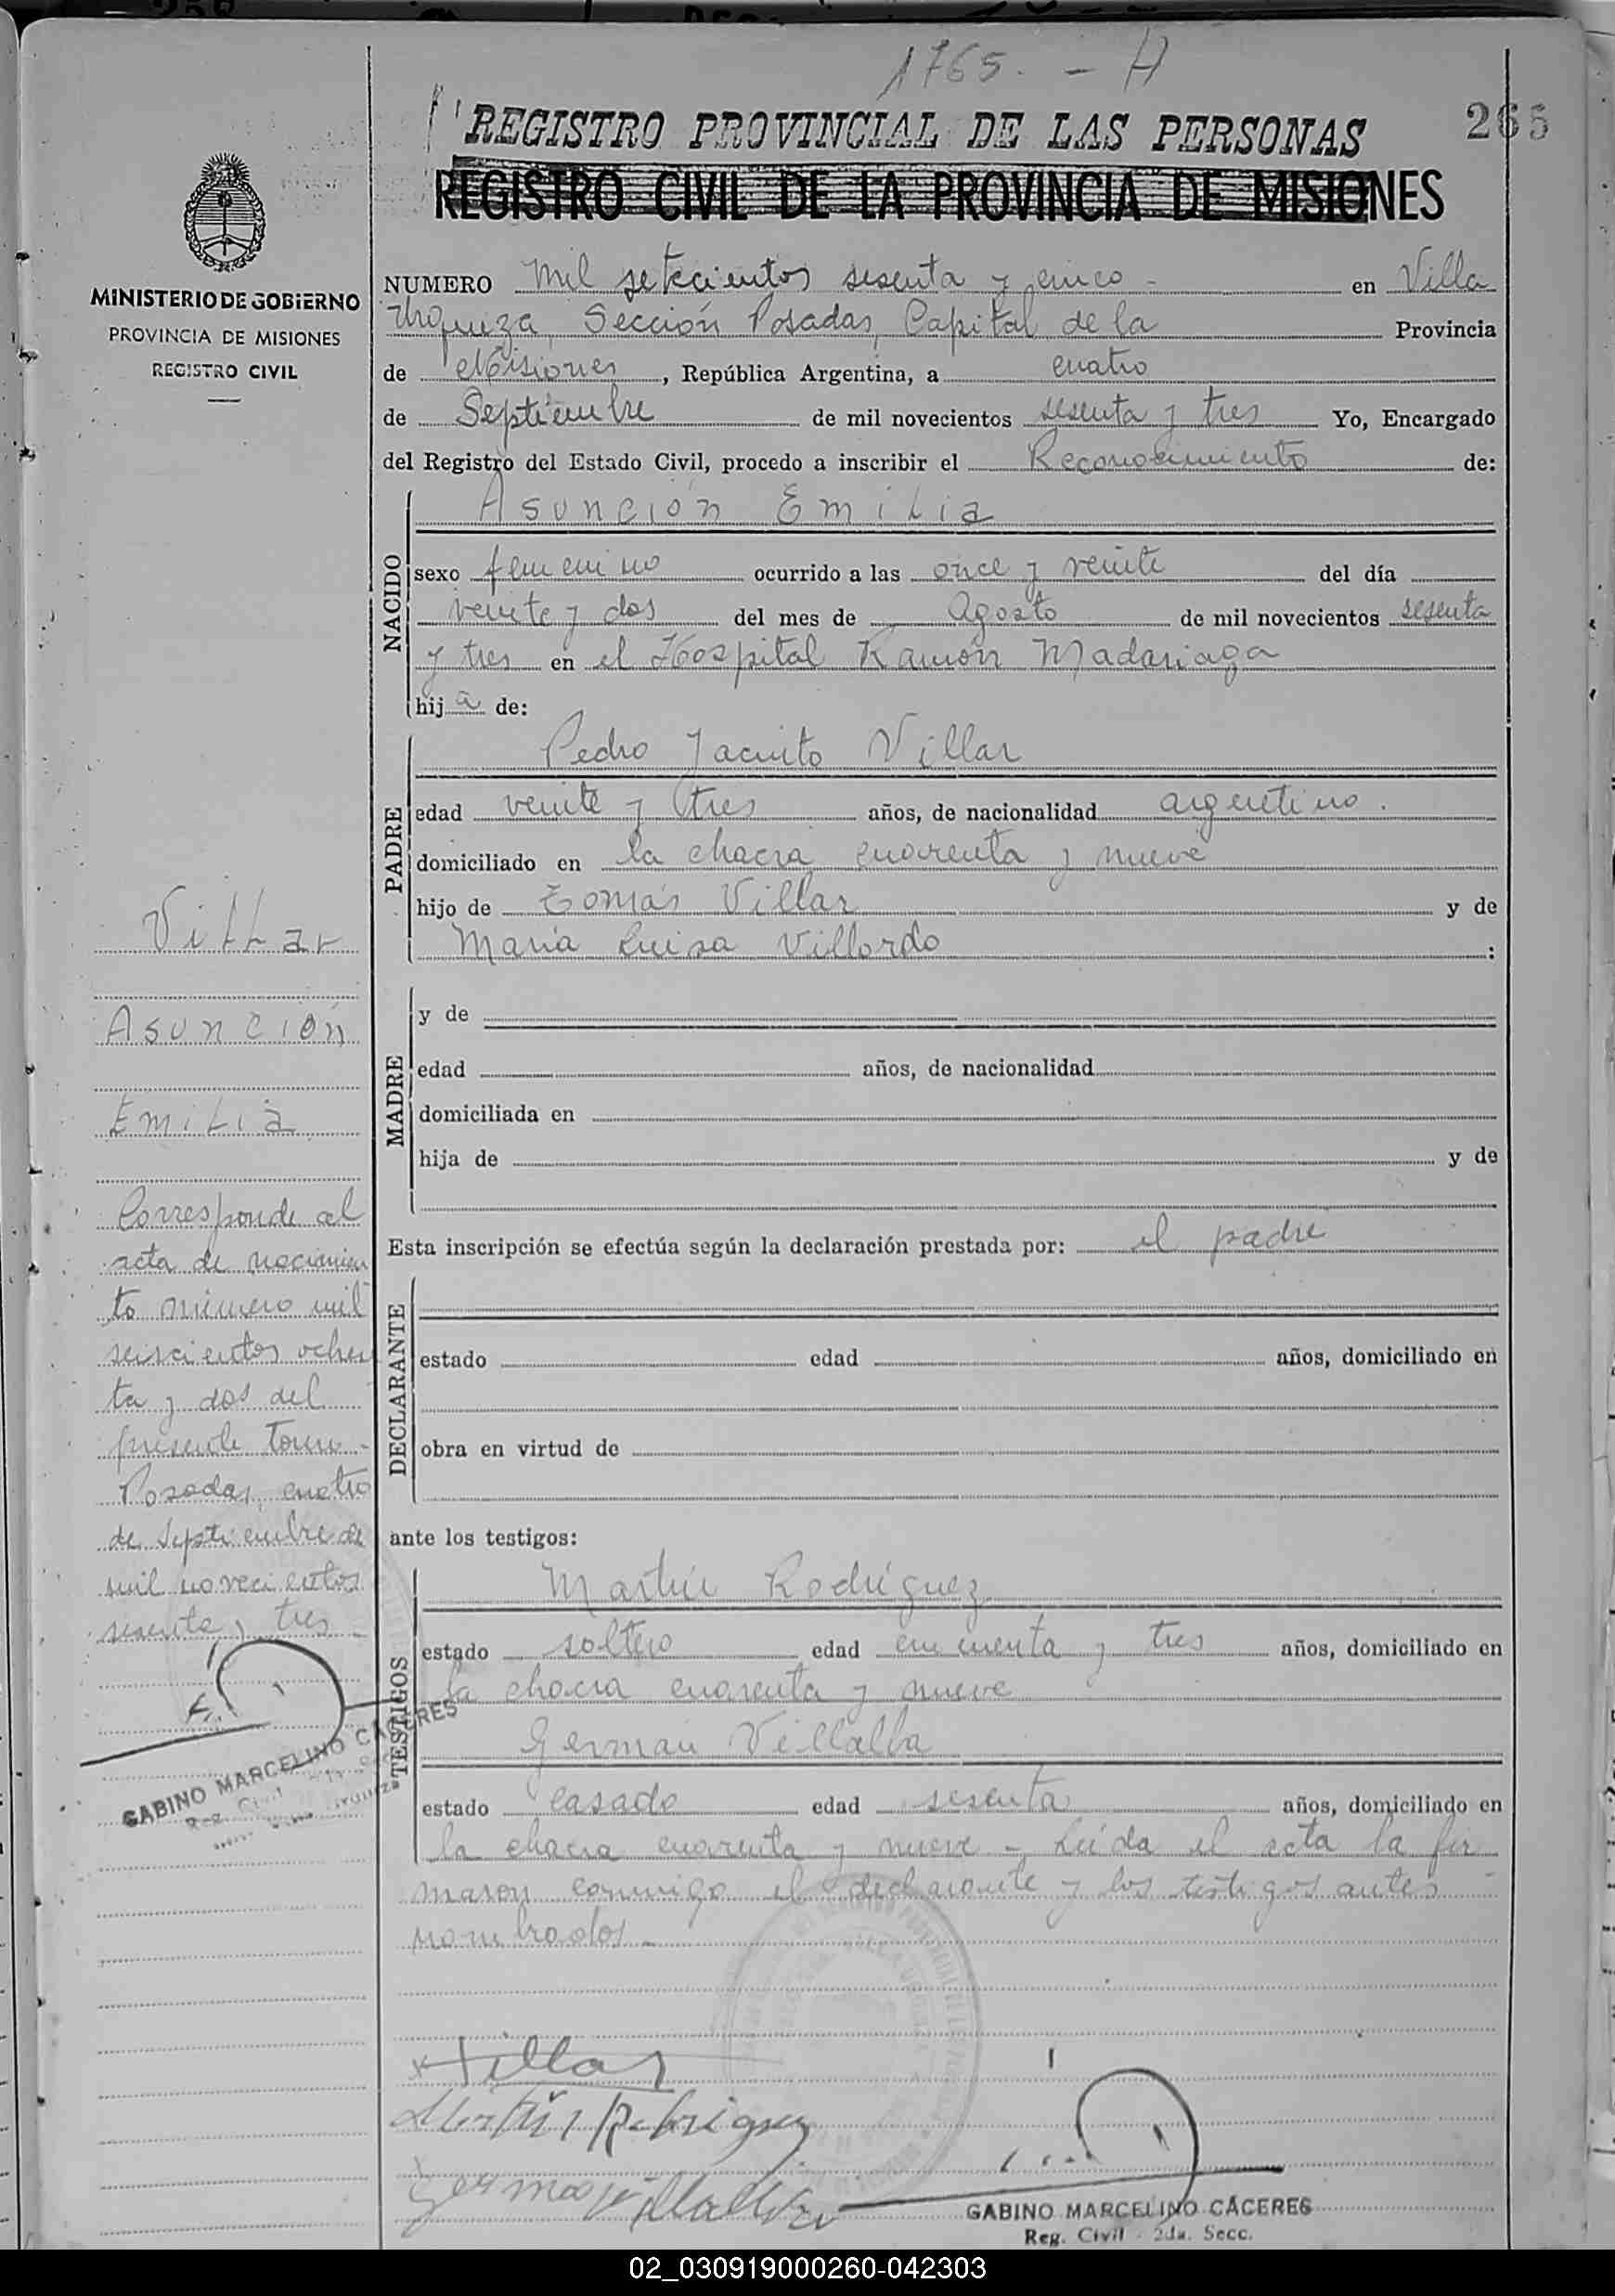 1765. - A
265
REGISTRO PROVINCIAL DE LAS PERSONAS
REGISTRO CIVIL DE LA PROVINCIA DE MISIONES
MINISTERIO DE GOBIERNO
PROVINCIA DE MISIONES
REGISTRO CIVIL
NUMERO Mil setecientos sesenta y cinco - en Villa
Urquiza, Sección Posadas, Capital de la Provincia
de Misiones, República Argentina, a cuatro
de Septiembre de mil novecientos sesenta y tres Yo, Encargado
del Registro del Estado Civil, procedo a inscribir el Reconocimiento de:
NACIDO
Asunción Emilia
sexo femenino ocurrido a las once y veinte del día
veinte y dos del mes de Agosto de mil novecientos sesenta
y tres en el Hospital Ramón Madariaga
hij a de:
PADRE
Pedro Jacinto Villar
edad veinte y tres años, de nacionalidad argentino.
domiciliado en la chacra cuarenta y nueve
hijo de Tomás Villar y de
María Luisa Villordo :
MADRE
y de
edad años, de nacionalidad
domiciliada en
hija de y de
Esta inscripción se efectúa según la declaración prestada por: el padre
DECLARANTE
estado edad años, domiciliado en
obra en virtud de
ante los testigos:
TESTIGOS
Martín Rodríguez
estado soltero edad cincuenta y tres años, domiciliado en
la chacra cuarenta y nueve
Germán Villalba
estado casado edad sesenta años, domiciliado en
la chacra cuarenta y nueve - Leída el acta la fir
maron conmigo el declarante y los testigos antes
nombrados -
Villar
Asunción
Emilia
Corresponde al
acta de nacimien
to número mil
seiscientos ochen
ta y dos del
presente tomo -
Posadas, cuatro
de Septiembre de
mil novecientos
sesenta y tres -
GABINO MARCELINO CACERES
Reg. Civil
Villar
Martín Rodriguez
German Villalba
GABINO MARCELINO CACERES
Reg. Civil - 2da. Secc.
02_030919000260-042303